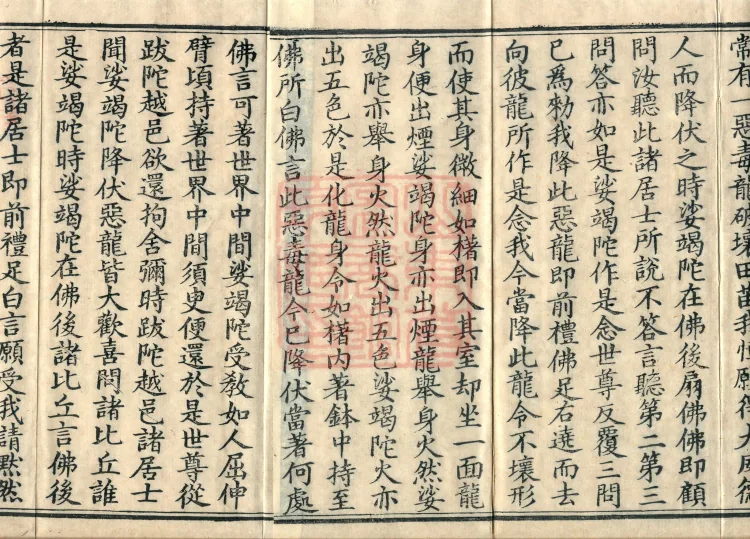 常有一惡毒龍破壞田苗我願得大威德
人而降伏之時娑竭陀在佛後扇佛佛即顧
問汝聽此諸居士所說不答言聽第二第三
問答亦如是娑竭陀作是念世尊反覆三問
已為勑我降此惡龍即前禮佛足右遶而去
向彼龍所作是念我今當降此龍令不壞形
而使其身微細如櫡即入其室却坐一面龍
身便出煙娑竭陀身亦出煙龍舉身火然娑
竭陀亦舉身火然龍火出五色娑竭陀火亦
出五色於是化龍身令如櫡內著鉢中持至
佛所白佛言此惡毒龍今已降伏當著何處
佛言可著世界中間娑竭陀受教如人屈伸
臂頃持著世界中間須臾便還於是世尊從
跋陀越邑欲還拘舍彌時跋陀越邑諸居士
聞娑竭陀降伏惡龍皆大歡喜問諸比丘誰
是娑竭陀時娑竭陀在佛後諸比丘言佛後
者是諸居士即前禮足白言願受我請默然